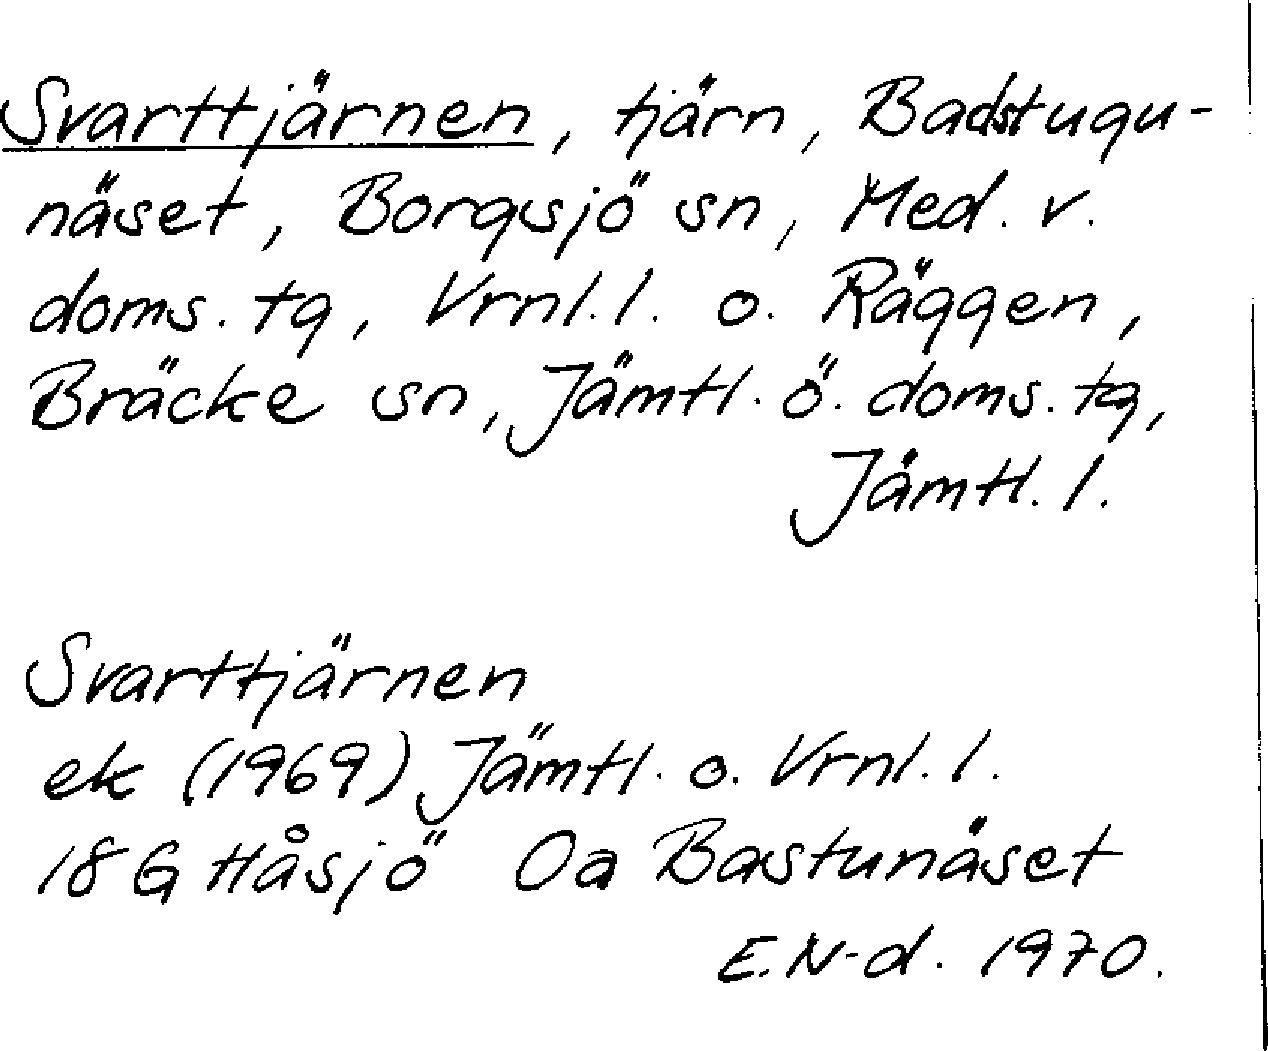 Svarttjärnen, tjärn, Badstugu-
näset, Borgsjö sn, Med. v.
doms. tg, Vrnl. l. o. Räggen,
Bräcke sn, Jämtl. ö. doms. tg,
Jämtl. l.
Svarttjärnen
ek (1969) Jämtl. o. Vrnl. l.
18 G Håsjö 0a Bastunäset
E. N-d. 1970.